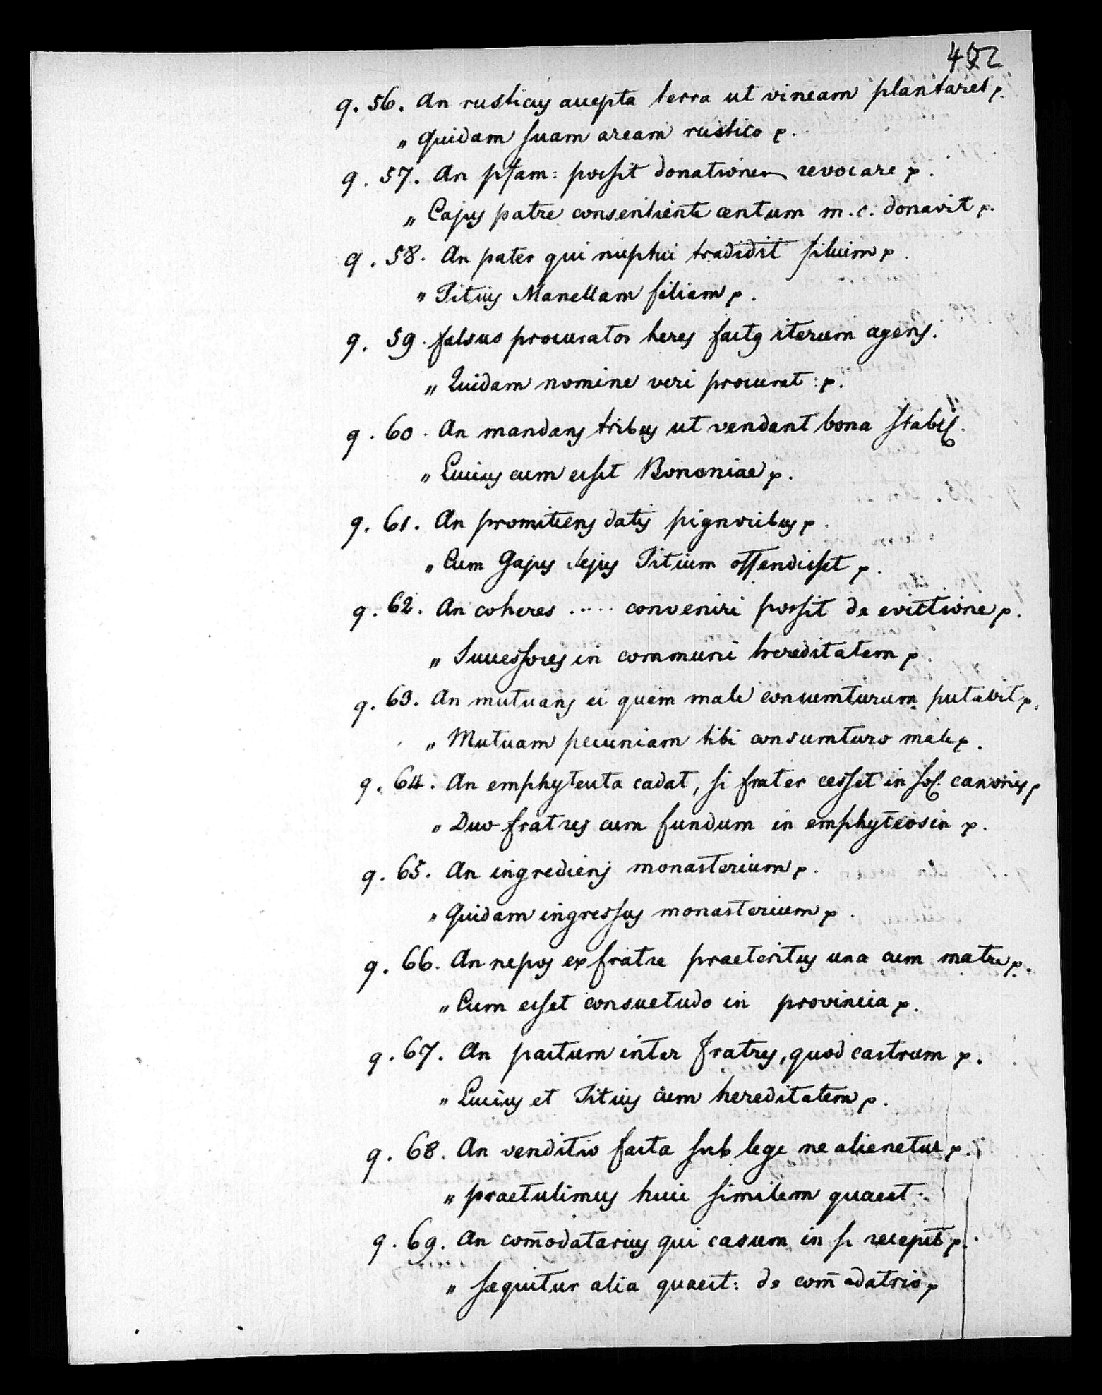 402
q. 56. An rusticus accepta terra ut vineam plantaret p.
" Quidam suam aream rustico p.
q. 57. An possit donationem revocare p.
" Cajus patre consentiente centum m. c. donavit p.
q. 58. An pater qui nuptui tradidit filiam p.
" Titius Manellam filiam p.
q. 59. falsus procurator heres factus iterum agens.
" Quidam nomine veri procurat: p.
q. 60. An mandans tribus ut vendant bona stabil.
" Lucius cum esset Bononiae p.
q. 61. An promittens datis pignoribus p.
" Cum Gajus Sejus Titium offendisset p.
q. 62. An coheres ..... conveniri possit de evictione p.
" Successores in communi hereditatem p.
q. 63. An mutuans ei quem male consumturum putabit p.
" Mutuam pecuniam tibi consumturo male p.
q. 64. An emphyteuta cadat, si frater cesset in sol. canonis p
" Duo fratres cum fundum in emphyteosin p.
q. 65. An ingrediens monasterium p.
" Quidam ingressus monasterium p.
q. 66. An nepos ex fratre praeteritus una cum matre p.
" Cum esset consuetudo in provincia p.
q. 67. An pactum inter fratres, quod castrum p.
" Lucius et Titius cum hereditatem p.
q. 68. An venditio facta sub lege ne alienetur p.
" praetulimus huic similem quaest:
q. 69. An com̄odatarius qui casum in se recepit p.
" sequitur alia quaest: de com̄odatrio p